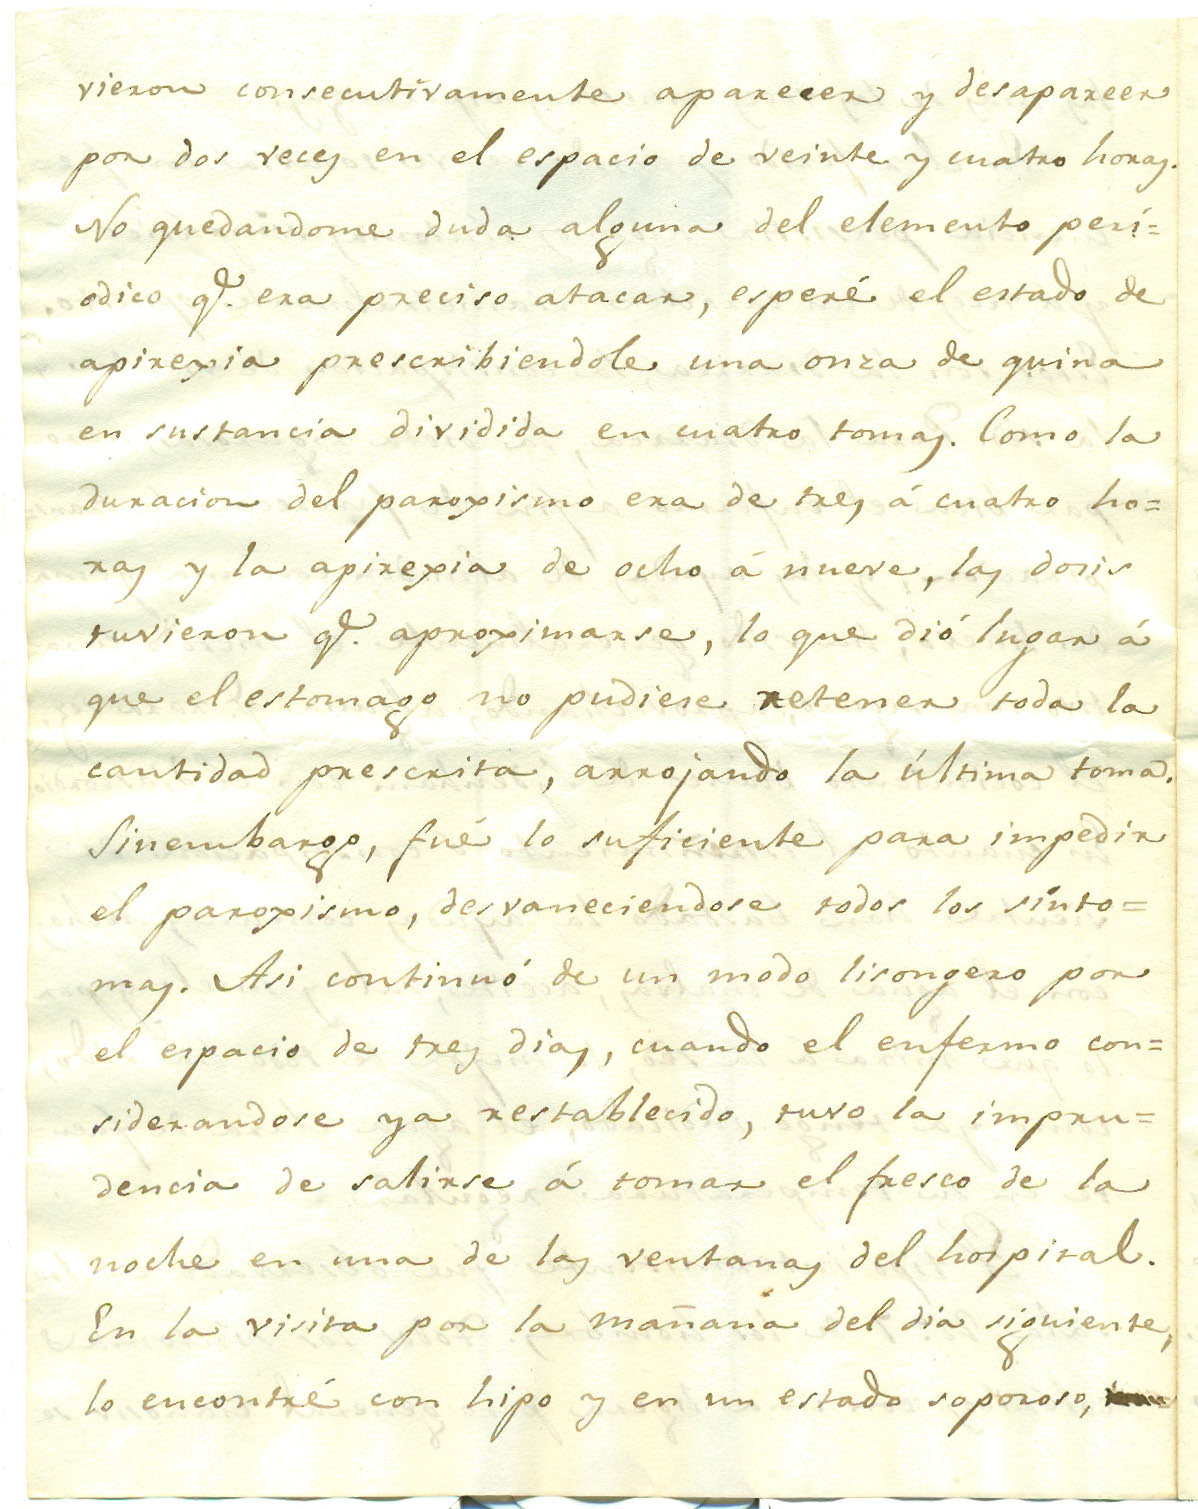 vieron consecutivamente aparecer y desaparecer
por dos veces en el espacio de veinte y cuatro horas.
No quedandome duda alguna del elemento perí=
odico q.e era preciso atacar, esperé el estado de
apirexia prescribiendole una onza de quina
en sustancia dividida en cuatro tomas. Como la
duracion del paroxismo era de tres á cuatro ho=
ras y la apirexia de ocho á nueve, las dosis
tuvieron q.e aproximarse, lo que dió lugar á
que el estomago no pudiese retener toda la
cantidad prescrita, arrojando la última toma.
Sinembargo, fué lo suficiente para impedir
el paroxismo, desvaneciendose todos los sínto=
mas. Asi continuó de un modo lisongero por
el espacio de tres dias, cuando el enfermo con=
siderandose ya restablecido, tuvo la impru=
dencia de salirse á tomar el fresco de la
noche en una de las ventanas del hospital.
En la visita por la mañana del dia siguiente,
lo encontré con hipo y en un estado soporoso,